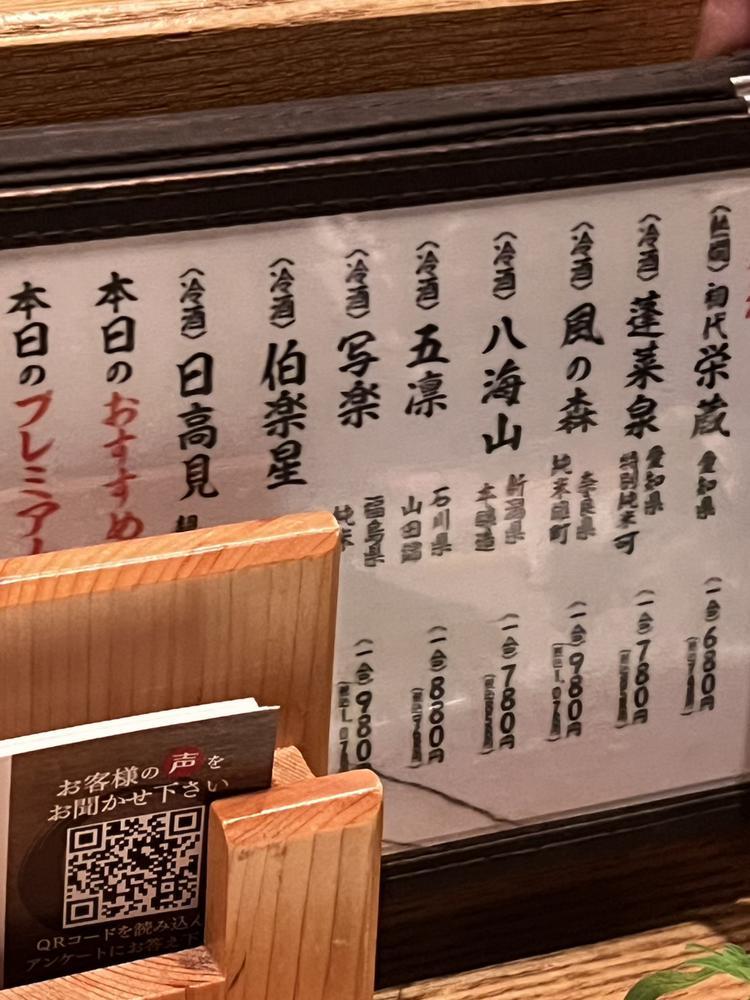 (熱燗) 初代 栄蔵 愛知県 (一合) 680円
(冷酒) 蓬莱泉 愛知県 特別純米 可 (一合) 780円
(冷酒) 風の森 奈良県 純米雄町 (一合) 980円
(冷酒) 八海山 新潟県 本醸造 (一合) 780円
(冷酒) 五凛 石川県 山田錦 (一合) 880円
(冷酒) 写楽 福島県 純米 (一合) 980
(冷酒) 伯楽星
(冷酒) 日高見
本日のおすすめ
本日のプレミア
お客様の声を
お聞かせ下さい
QRコードを読み込
アンケートにお答え下